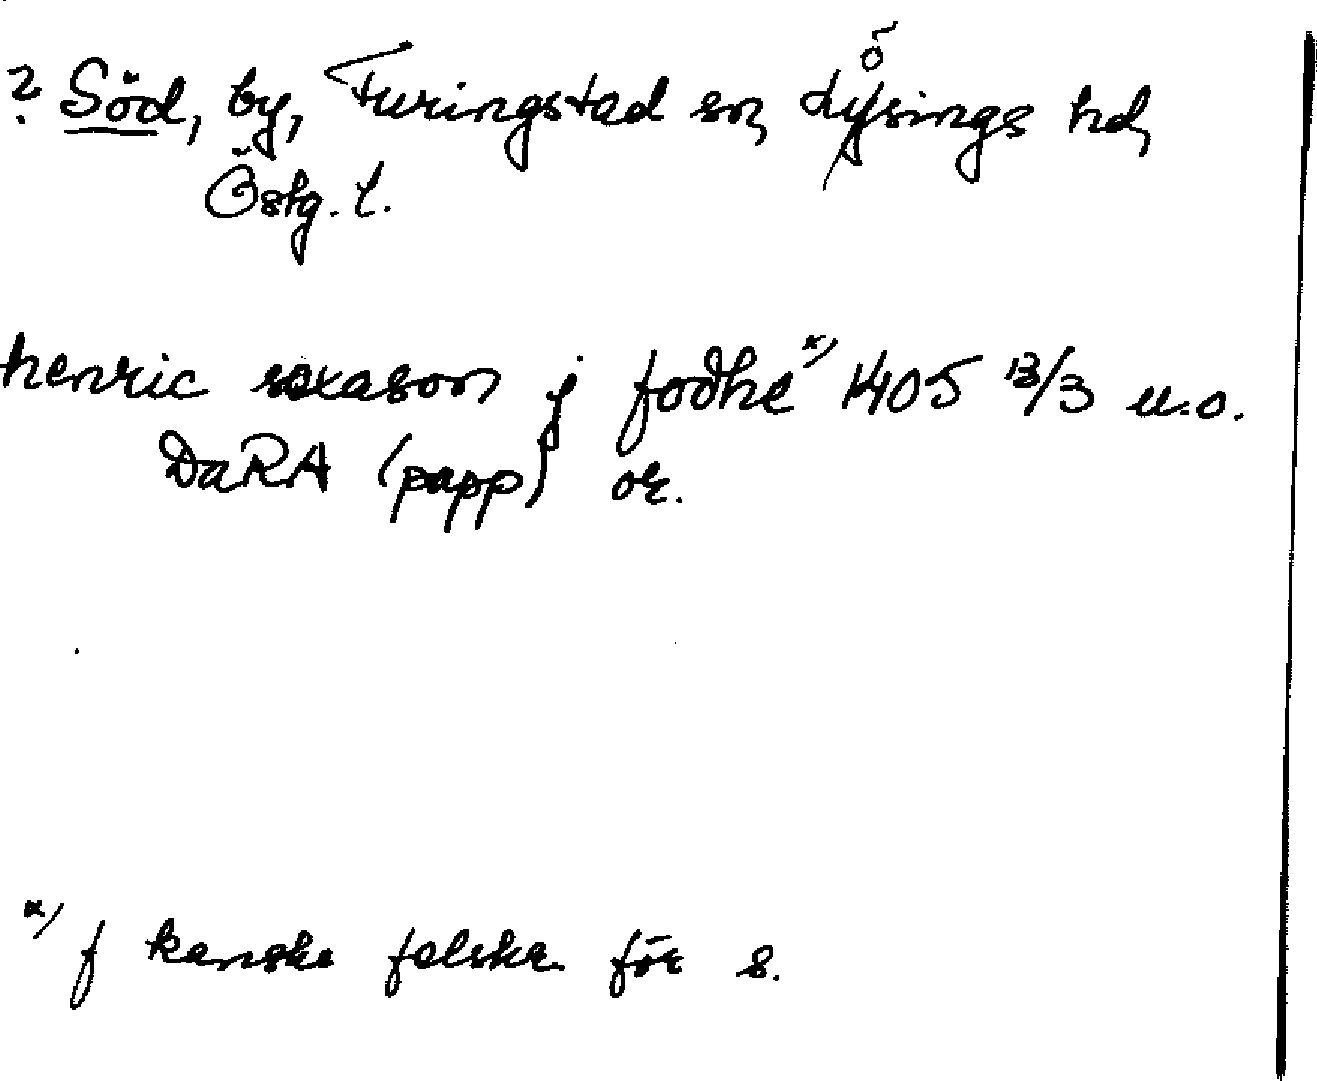 ? Söd, by, Furingstad sn, Lösings hd,
Östg. l.
henric saxason j fodhe x) 1405 13/3 u.o.
DaRA (papp) or.
x) f kanske felskr. för s.